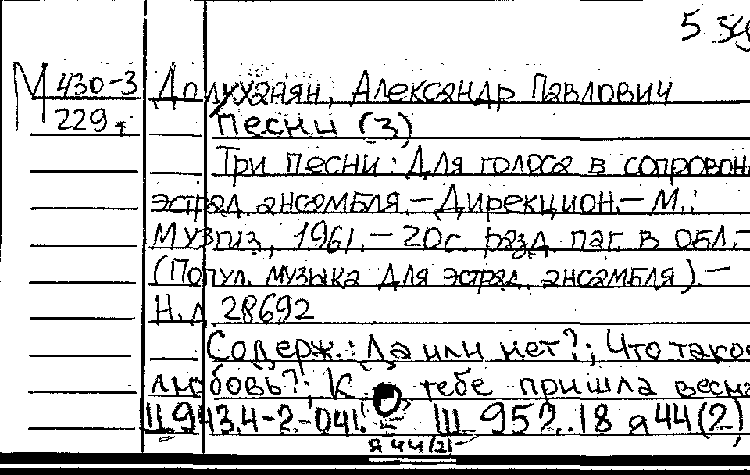 5 39
М 430-3 Долуханян, Александр Павлович
229. Песни (3)
Три песни: Для голоса в сопровож
эстрад. ансамбля. — Дирекцион. — М.:
Музгиз, 1961. — 20с. разд. паг. в обл. —
(Попул. музыка для эстрад. ансамбля). —
Н.д. 28692
Содерж.: Да или нет?; Что такое
любовь?; К тебе пришла весна
II 943.4-2-041. = III 952.18 я44(2)
я44(2)